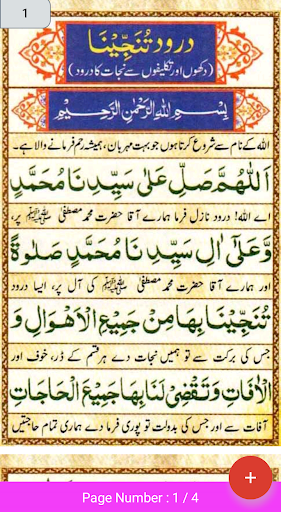 1
درود تُنَجِّینَا
(دکھوں اور تکلیفوں سے نجات کا درود)
بِسْمِ اللهِ الرَّحْمٰنِ الرَّحِيْمِ
اللہ کے نام سے شروع کرتا ہوں جو بہت مہربان، ہمیشہ رحم فرمانے والا ہے۔
اَللّٰهُمَّ صَلِّ عَلٰى سَيِّدِنَا مُحَمَّدٍ
اے اللہ! درود نازل فرما ہمارے آقا حضرت محمد مصطفیٰ ﷺ پر،
وَّعَلٰٓى اٰلِ سَيِّدِنَا مُحَمَّدٍ صَلٰوةً
اور ہمارے آقا حضرت محمد مصطفیٰ ﷺ کی آل پر، ایسا درود
تُنَجِّيْنَا بِهَا مِنْ جَمِيْعِ الْاَهْوَالِ وَ
جس کی برکت سے تو ہمیں نجات دے ہر قسم کے ڈر، خوف اور
الْاٰفَاتِ وَتَقْضِىْ لَنَا بِهَا جَمِيْعَ الْحَاجَاتِ
آفات سے اور جس کی بدولت تو پوری فرما دے ہماری تمام حاجتیں
+
Page Number : 1 / 4